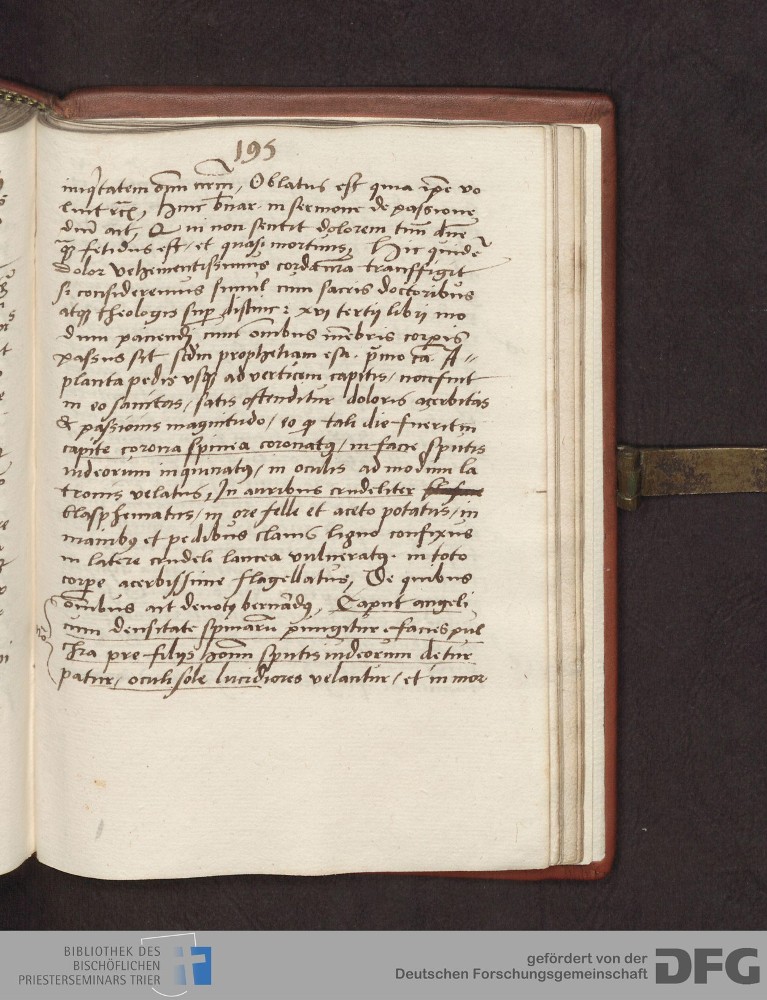 195
iniq̉tatem om̄ nr̄m, Oblatus est quia ip̄e vo
luit
Hinc in sermone de passione
dn̄i ait, Qui non sentit dolorem tuū dn̄e
fetidus est, et quasi mortuus, Hic quidē
dolor vehementissimus corda nr̄a transfigit
si consideremus simul cum sacris doctoribus
atq theologis sup distinc: xvi tertij libri mo
dum patiendi cum om̄ibus mēbris corpis
passus sit sc̄dm prophetiam esa. pͥmo ca. A
planta pedis vsq ad verticem capitis, non fuit
in eo sanitas, satis ostenditur doloris acerbitas
& passionis magnitudo, eo q tali die fuerit in
capite corona spinea coronatꝰ, in facie sputis
iudeorum inquinatꝰ, in oculis ad modum la
tronis velatus, In auribus crudeliter
blasphematus, in ore felle et aceto potatus, in
manibꝰ et pedibus clauis ligno confixus
in latere crudeli lancea vulneratꝰ. in toto
corpe acerbissime flagellatus, De quibus
om̄ibus ait deuotꝰ bernādꝰ, Caput angeli
cum densitate spinarū pungitur, facies pul
hra pre filijs hom̄ sputis iudeorum detur
patur, oculi sole lucidiores velantur, et in mor
BIBLIOTHEK DES
BISCHÖFLICHEN
PRIESTERSEMINARS TRIER
gefördert von der
Deutschen Forschungsgemeinschaft
DFG